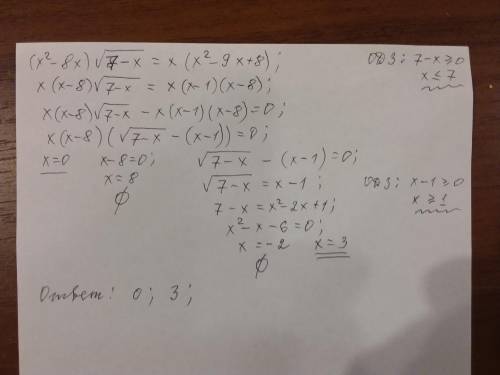 (x²-8x)√7-x = x(x²-9x+8); ОДЗ: 7-x≥0
x(x-8)√7-x = x(x-1)(x-8); x≤7
x(x-8)√7-x - x(x-1)(x-8)=0;
x(x-8)(√7-x - (x-1))=0;
x=0 x-8=0; √7-x - (x-1)=0;
x=8 √7-x = x-1; ОДЗ: x-1≥0
∅ 7-x = x²-2x+1; x≥1
x²-x-6=0;
x=-2 x=3
∅
Ответ: 0; 3;